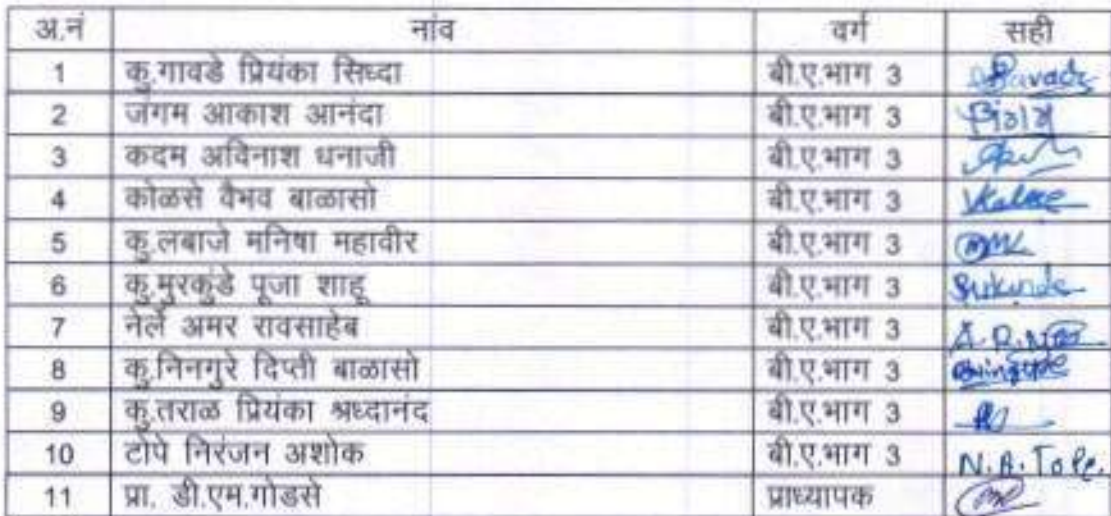 अ.नं नांव वर्ग सही
1 कु.गावडे प्रियंका सिध्दा बी.ए.भाग 3
2 जंगम आकाश आनंदा बी.ए.भाग 3
3 कदम अविनाश धनाजी बी.ए.भाग 3
4 कोळसे वैभव बाळासो बी.ए.भाग 3
5 कु.लबाजे मनिषा महावीर बी.ए.भाग 3
6 कु.मुरकुंडे पूजा शाहू बी.ए.भाग 3
7 नेर्ले अमर रावसाहेब बी.ए.भाग 3
8 कु.निनगुरे दिप्ती बाळासो बी.ए.भाग 3
9 कु.तराळ प्रियंका श्रध्दानंद बी.ए.भाग 3
10 टोपे निरंजन अशोक बी.ए.भाग 3 N.A.Tope.
11 प्रा. डी.एम.गोडसे प्राध्यापक